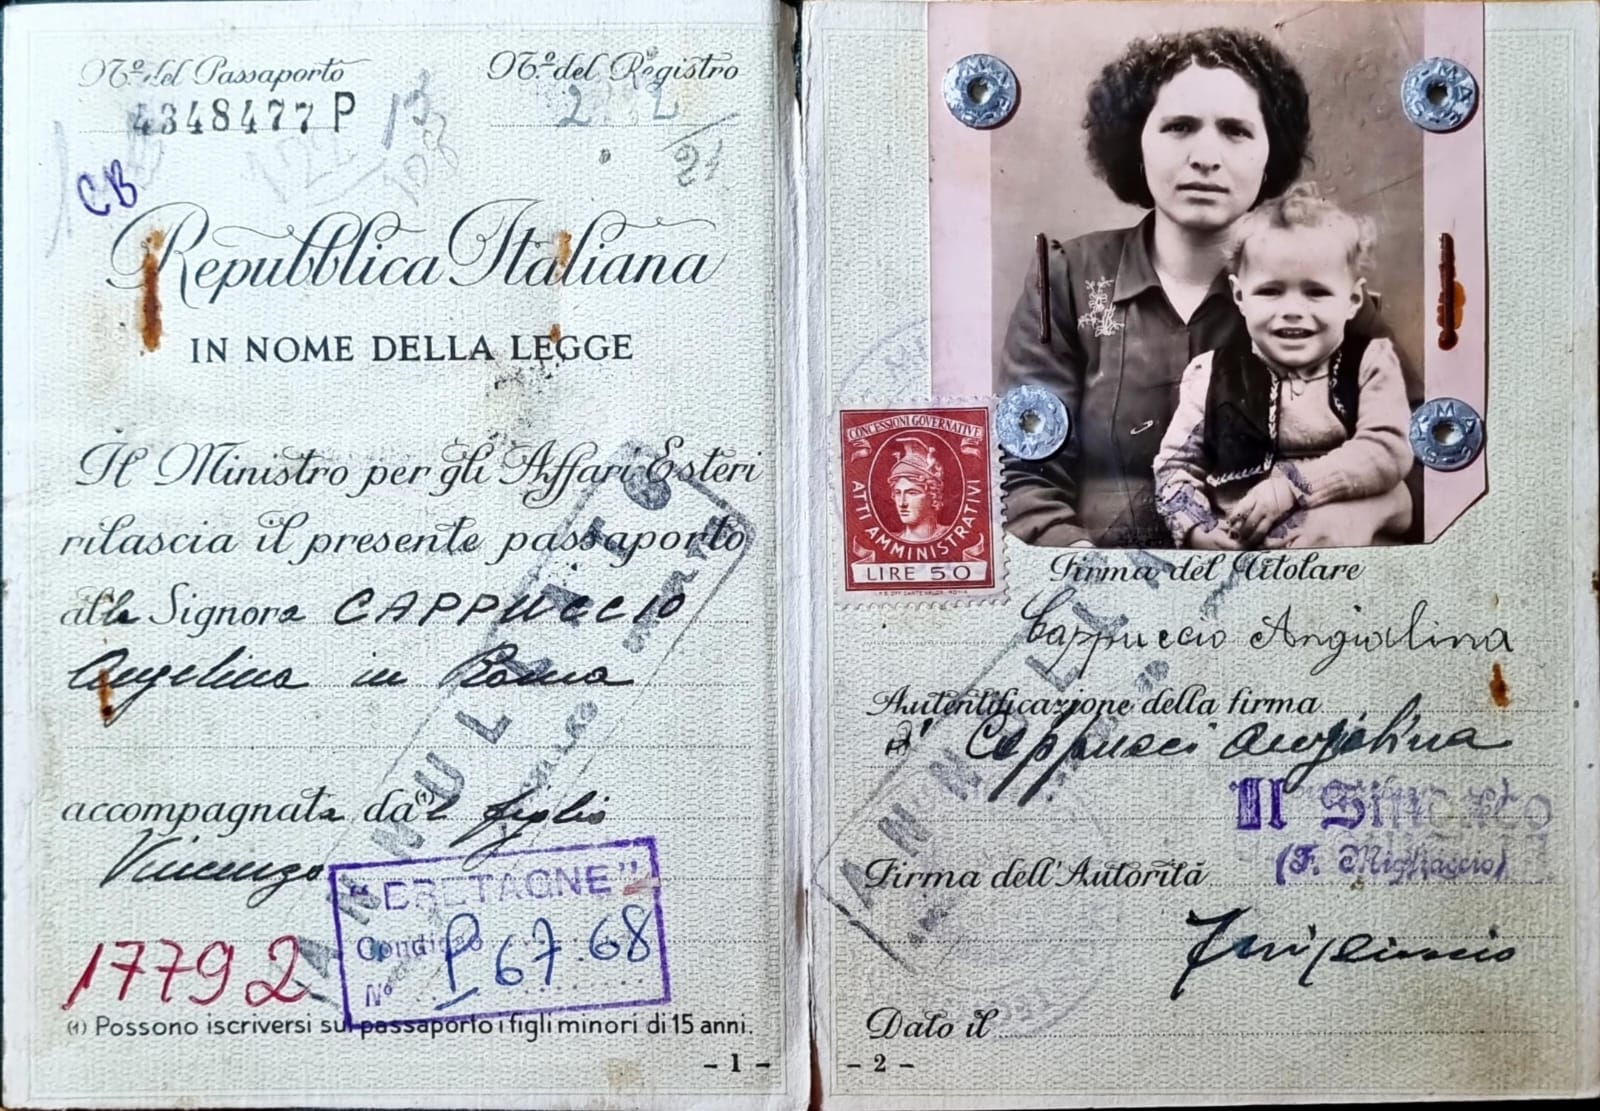 Nº del Passaporto
4348477 P
Nº del Registro
CB
Repubblica Italiana
IN NOME DELLA LEGGE
Il Ministro per gli Affari Esteri
rilascia il presente passaporto
alla Signora CAPPUCCIO
Angelina in Roma
accompagnata da(1) l figlio
Vincenzo
17792
"BRETAGNE"
Condi
Nº P 67-68
ANNULLATO
(1) Possono iscriversi sul passaporto i figli minori di 15 anni.
- 1 -
CONCESSIONI GOVERNATIVE
ATTI AMMINISTRATIVI
LIRE 50
Firma del Titolare
Cappuccio Angiolina
Autentificazione della firma
di Cappucci Angiolina
Il Sindaco
(F. Migliaccio)
Firma dell'Autorità
ANNULL
Dato il
- 2 -